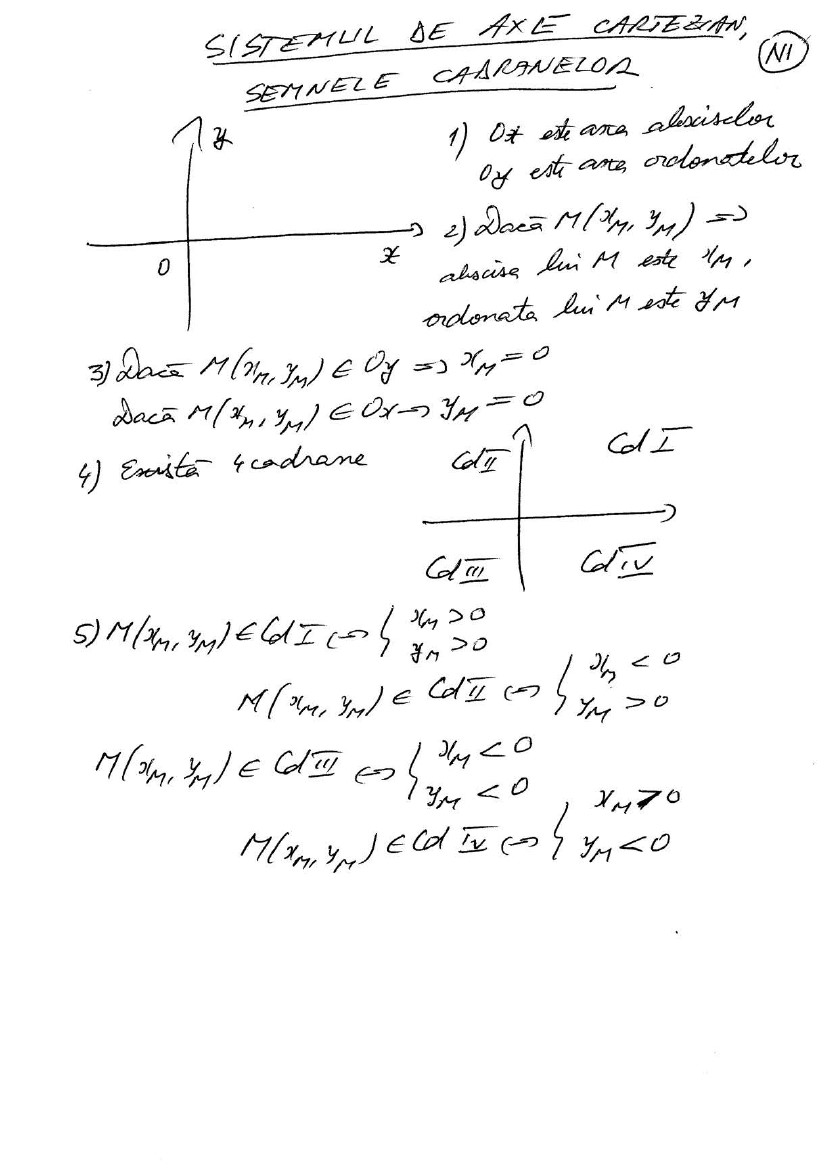 SISTEMUL DE AXE CARTEZIAN,
SEMNELE CADRANELOR
N1
y
x
O
1) Ox este axa absciselor
Oy este axa ordonatelor
2) Dacă M(x_M, y_M) =>
abscisa lui M este x_M,
ordonata lui M este y_M
3) Dacă M(x_M, y_M) ∈ Oy => x_M = 0
Dacă M(x_M, y_M) ∈ Ox => y_M = 0
4) Există 4 cadrane
Cd II
Cd I
Cd III
Cd IV
5) M(x_M, y_M) ∈ Cd I <=> { x_M > 0
y_M > 0
M(x_M, y_M) ∈ Cd II <=> { x_M < 0
y_M > 0
M(x_M, y_M) ∈ Cd III <=> { x_M < 0
y_M < 0
M(x_M, y_M) ∈ Cd IV <=> { x_M > 0
y_M < 0